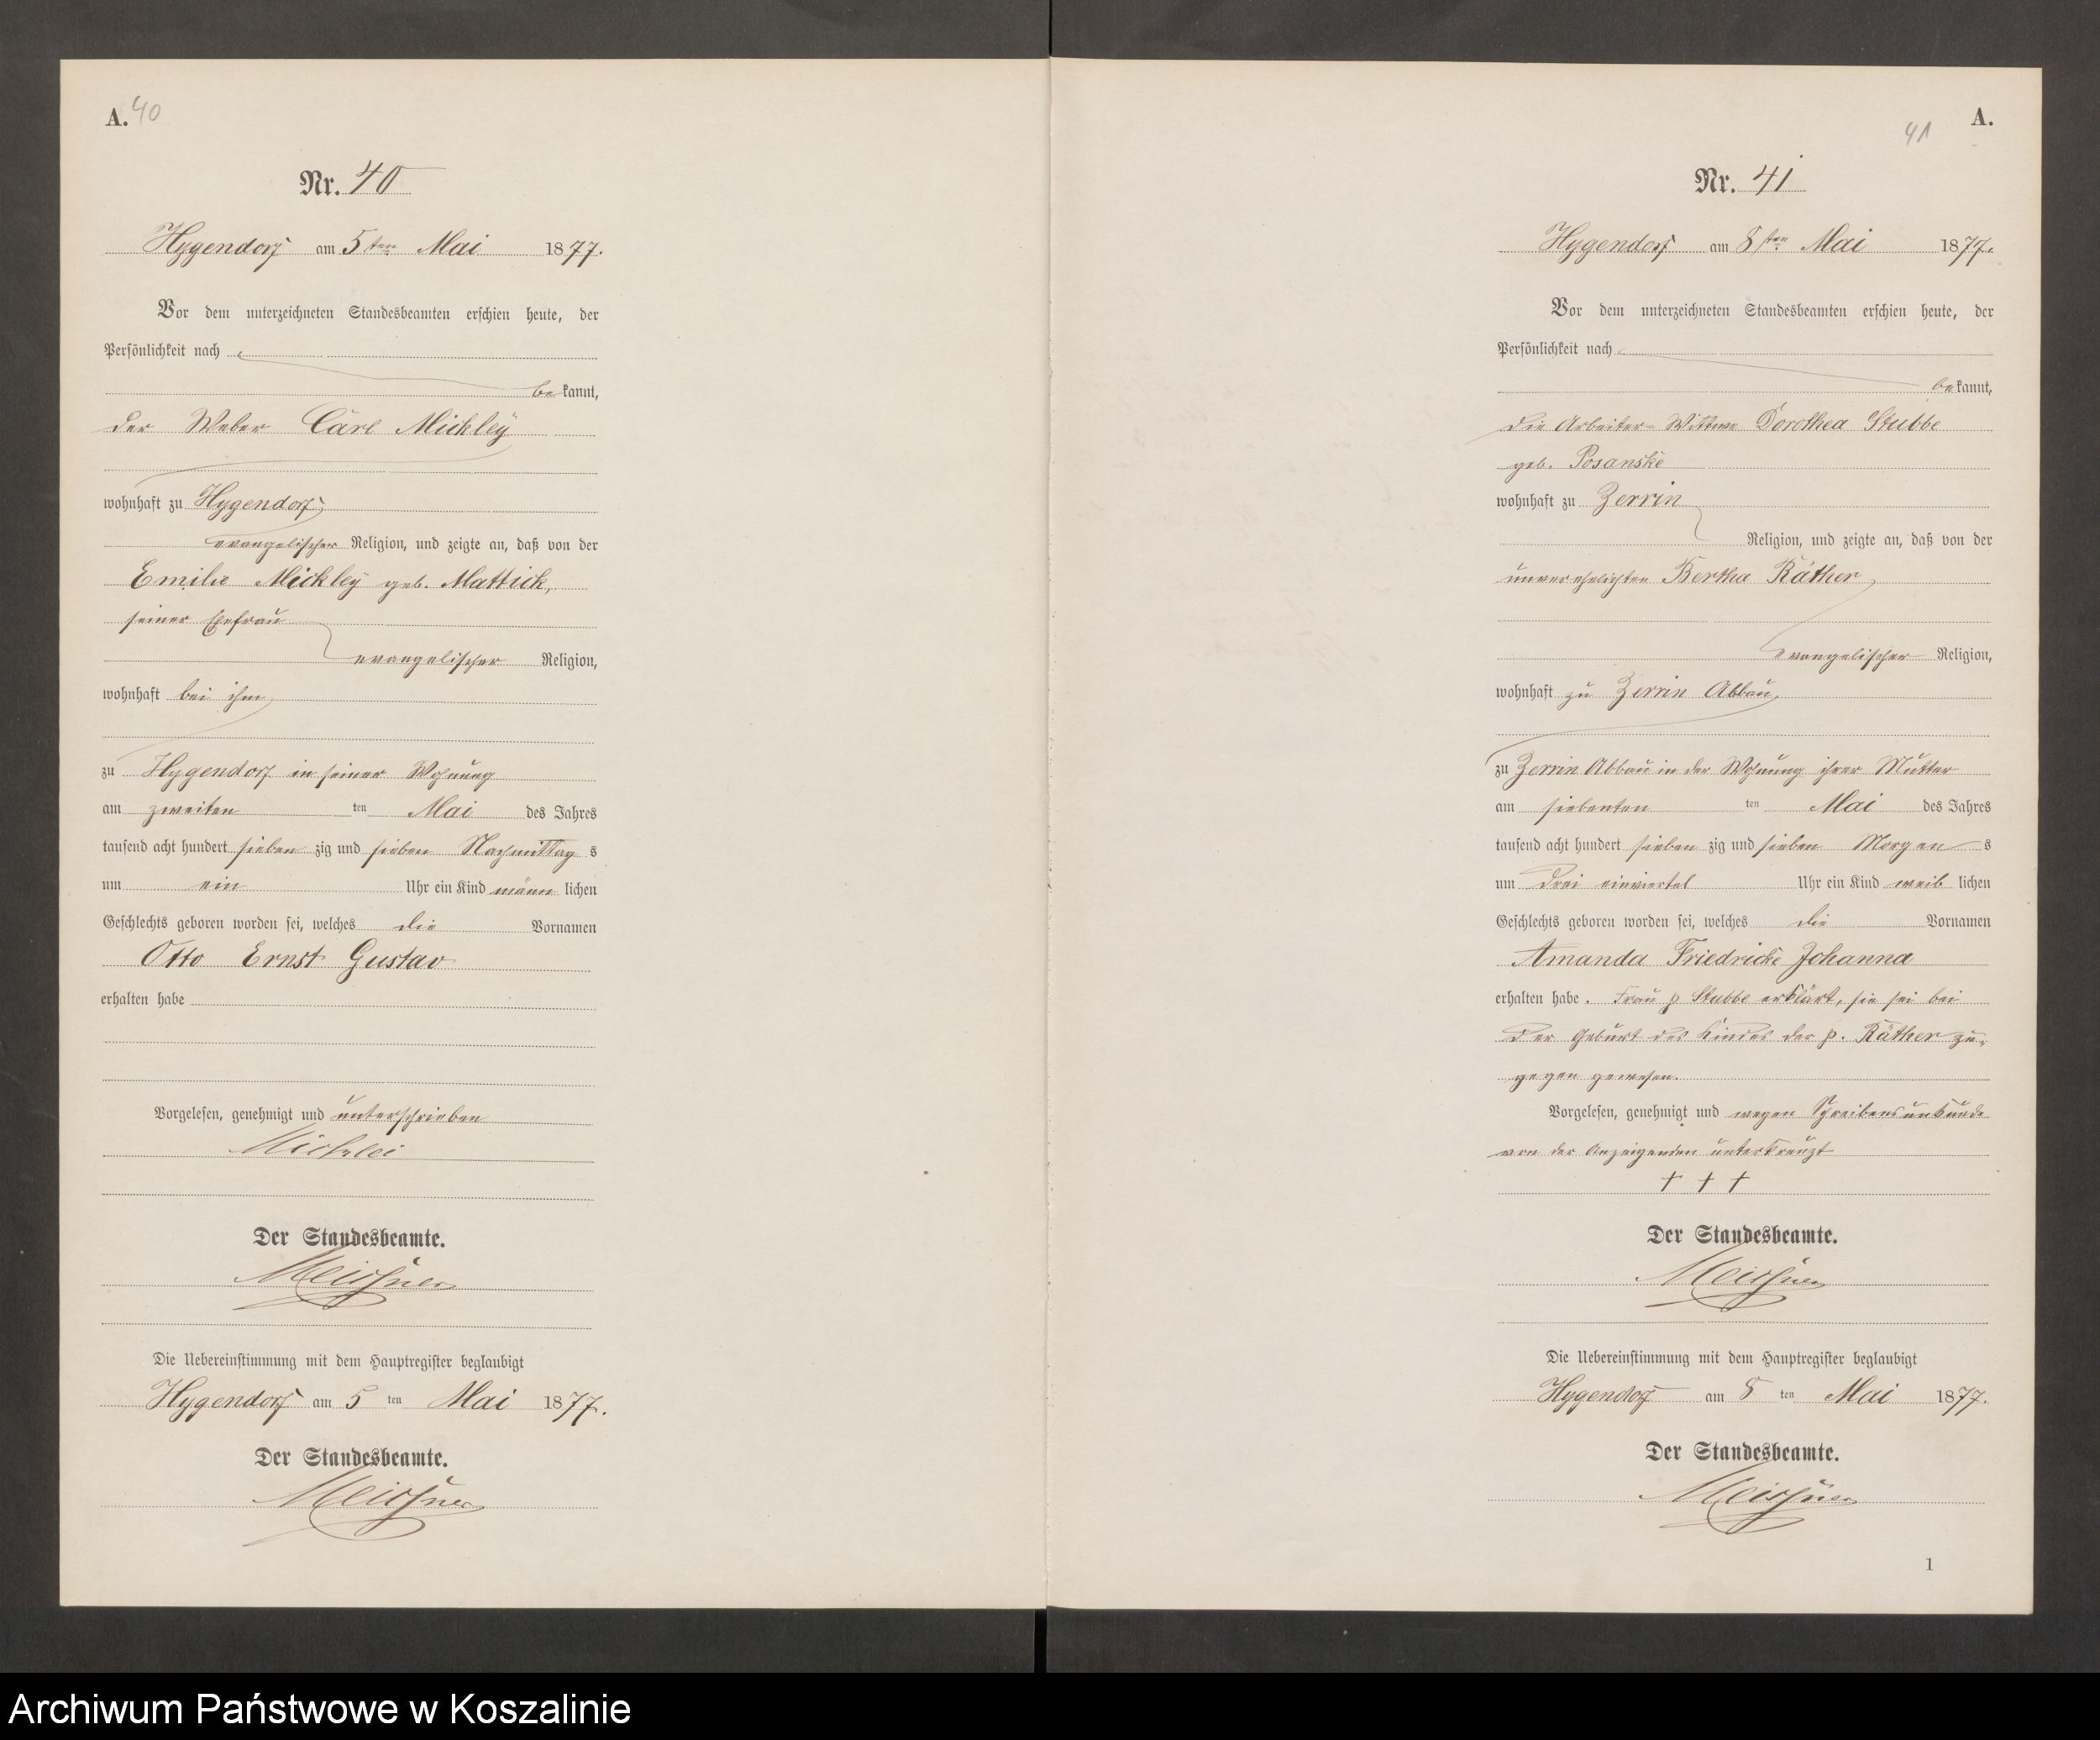 A. 40
Nr. 40
Hygendorf am 5ten Mai 1877.
Vor dem unterzeichneten Standesbeamten erschien heute, der
Persönlichkeit nach
bekannt,
der Weber Carl Mickley
wohnhaft zu Hygendorf,
evangelischer Religion, und zeigte an, daß von der
Emilie Mickley geb. Mattick,
seiner Ehefrau
evangelischer Religion,
wohnhaft bei ihm,
zu Hygendorf in seiner Wohnung
am zweiten ten Mai des Jahres
tausend acht hundert sieben zig und sieben Nachmittag s
um ein Uhr ein Kind männ lichen
Geschlechts geboren worden sei, welches die Vornamen
Otto Ernst Gustav
erhalten habe
Vorgelesen, genehmigt und unterschrieben
Micklei
Der Standesbeamte.
Meissner
Die Uebereinstimmung mit dem Hauptregister beglaubigt
Hygendorf am 5 ten Mai 1877.
Der Standesbeamte.
Meissner
41 A.
Nr. 41
Hygendorf am 8ten Mai 1877.
Vor dem unterzeichneten Standesbeamten erschien heute, der
Persönlichkeit nach
bekannt,
die Arbeiter-Wittwe Dorothea Stubbe
geb. Posanske
wohnhaft zu Zerrin
Religion, und zeigte an, daß von der
unverehelichten Bertha Räther,
evangelischer Religion,
wohnhaft zu Zerrin Abbau,
zu Zerrin Abbau in der Wohnung ihrer Mutter
am siebenten ten Mai des Jahres
tausend acht hundert sieben zig und sieben Morgen s
um drei einviertel Uhr ein Kind weib lichen
Geschlechts geboren worden sei, welches die Vornamen
Amanda Friedricke Johanna
erhalten habe. Frau p Stubbe erklärt, sie sei bei
der Geburt des Kindes der p. Räther zu-
gegen gewesen.
Vorgelesen, genehmigt und wegen Schreibensunkunde
von der Anzeigenden unterkreuzt
+ + +
Der Standesbeamte.
Meissner
Die Uebereinstimmung mit dem Hauptregister beglaubigt
Hygendorf am 8 ten Mai 1877.
Der Standesbeamte.
Meissner
1
Archiwum Państwowe w Koszalinie